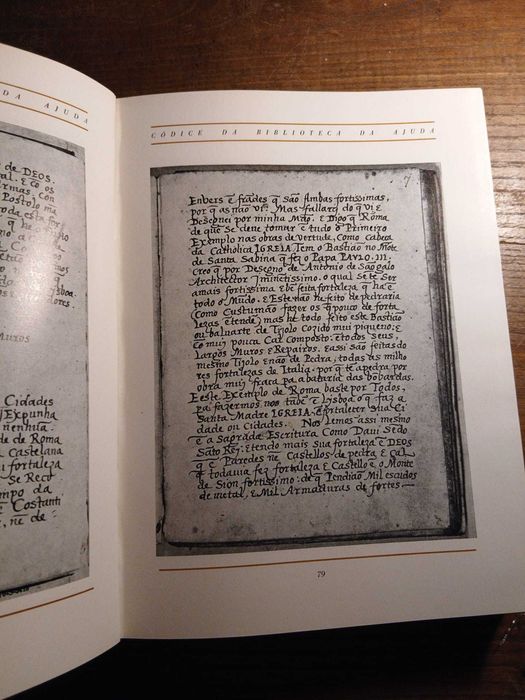 DA AJUDA
de DEOS.
al. E cõ os
rmas. Con
Postolo ma
roda esta for
q̃ he o
ño
Lisboa.
edores.
Muros
Cidades
Expunha
neñhuia.
de de Roma
Castelana
ou fortaleza
Se Rect
mpo da
e Costanti
ne de
CÓDICE DA BIBLIOTECA DA AJUDA
7
Envers e frades q̃ são Ambas fortissimas,
por q̃ as não vi. Mas fallarei do q̃ vi E
Desenei por minha Mão. E Digo q̃ Roma
de que Se deve tomar e tudo o Primeiro
Exemplo nas obras de vertude, Como Cabeca
da Catholica IGREIA Tem o Bastião no Mõte
de Santa Sabina q̃ fez o Papa PAVLO.III.
Creo q̃ por Deseño de Antonio de São galo
Architector o qual Se te ser
amais fortissima E be feita fortaleza q̃ ha e
todo o Mũdo. E Este não he feito de pedraria
(Como Custumão fazer os q̃ pouco de forta
lezas etende) mas he todo feito este Bastião
ou baluarte de Tijolo Cozido mui piqueno: E
Cõ mui pouca Cal Composto: e todos seus,
Largos Muros E Repairos. E assi são feitas do
mesmo Tijolo E não de Pedra, todas as milho
res fortalezas de Italia. por q̃ te apedra por
obra mui fraca pa a bataria das bõbardas.
E este Exemplo de Roma baste por Todos,
pa fazermos nos tãbe e Lisboa o q̃ faz a
Santa Madre IGREIA, e fortaleser Sua Ci
dade ou Cidades. Nos Lemos assi mesmo
e a Sagrada Escritura Como Davi Sedo
Sãto Rei: E tendo mais Sua fortaleza e DEOS
q̃ e Paredes ne Castellos de pedra E Cal
q̃ todavia fez fortaleza E Castello e o Monte
de Sion fortissimo: de q̃ Pendião Mil escudos
de metal, E Mil Armaduras de fortes.—
79